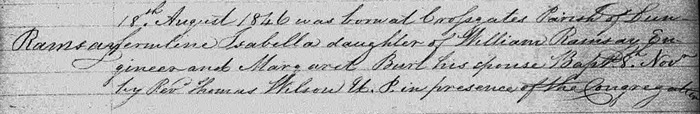 18th. August 1846 was born at Crossgates Parish of Dun
Ramsay fermline Isabella daughter of William Ramsay En
gineer and Margaret Burt his spouse Bapt. 8th. Novr
by Revd. Thomas Wilson U. P. in presence of the Congregation